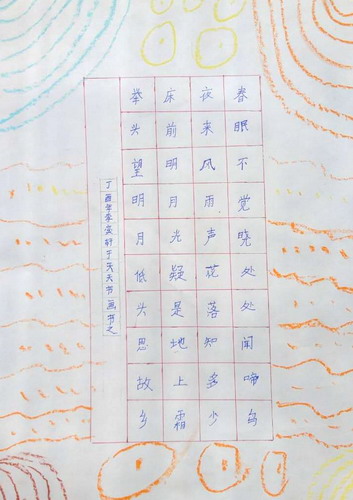 春眠不觉晓处处闻啼鸟
夜来风雨声花落知多少
床前明月光疑是地上霜
举头望明月低头思故乡
丁酉年于天天书画书之